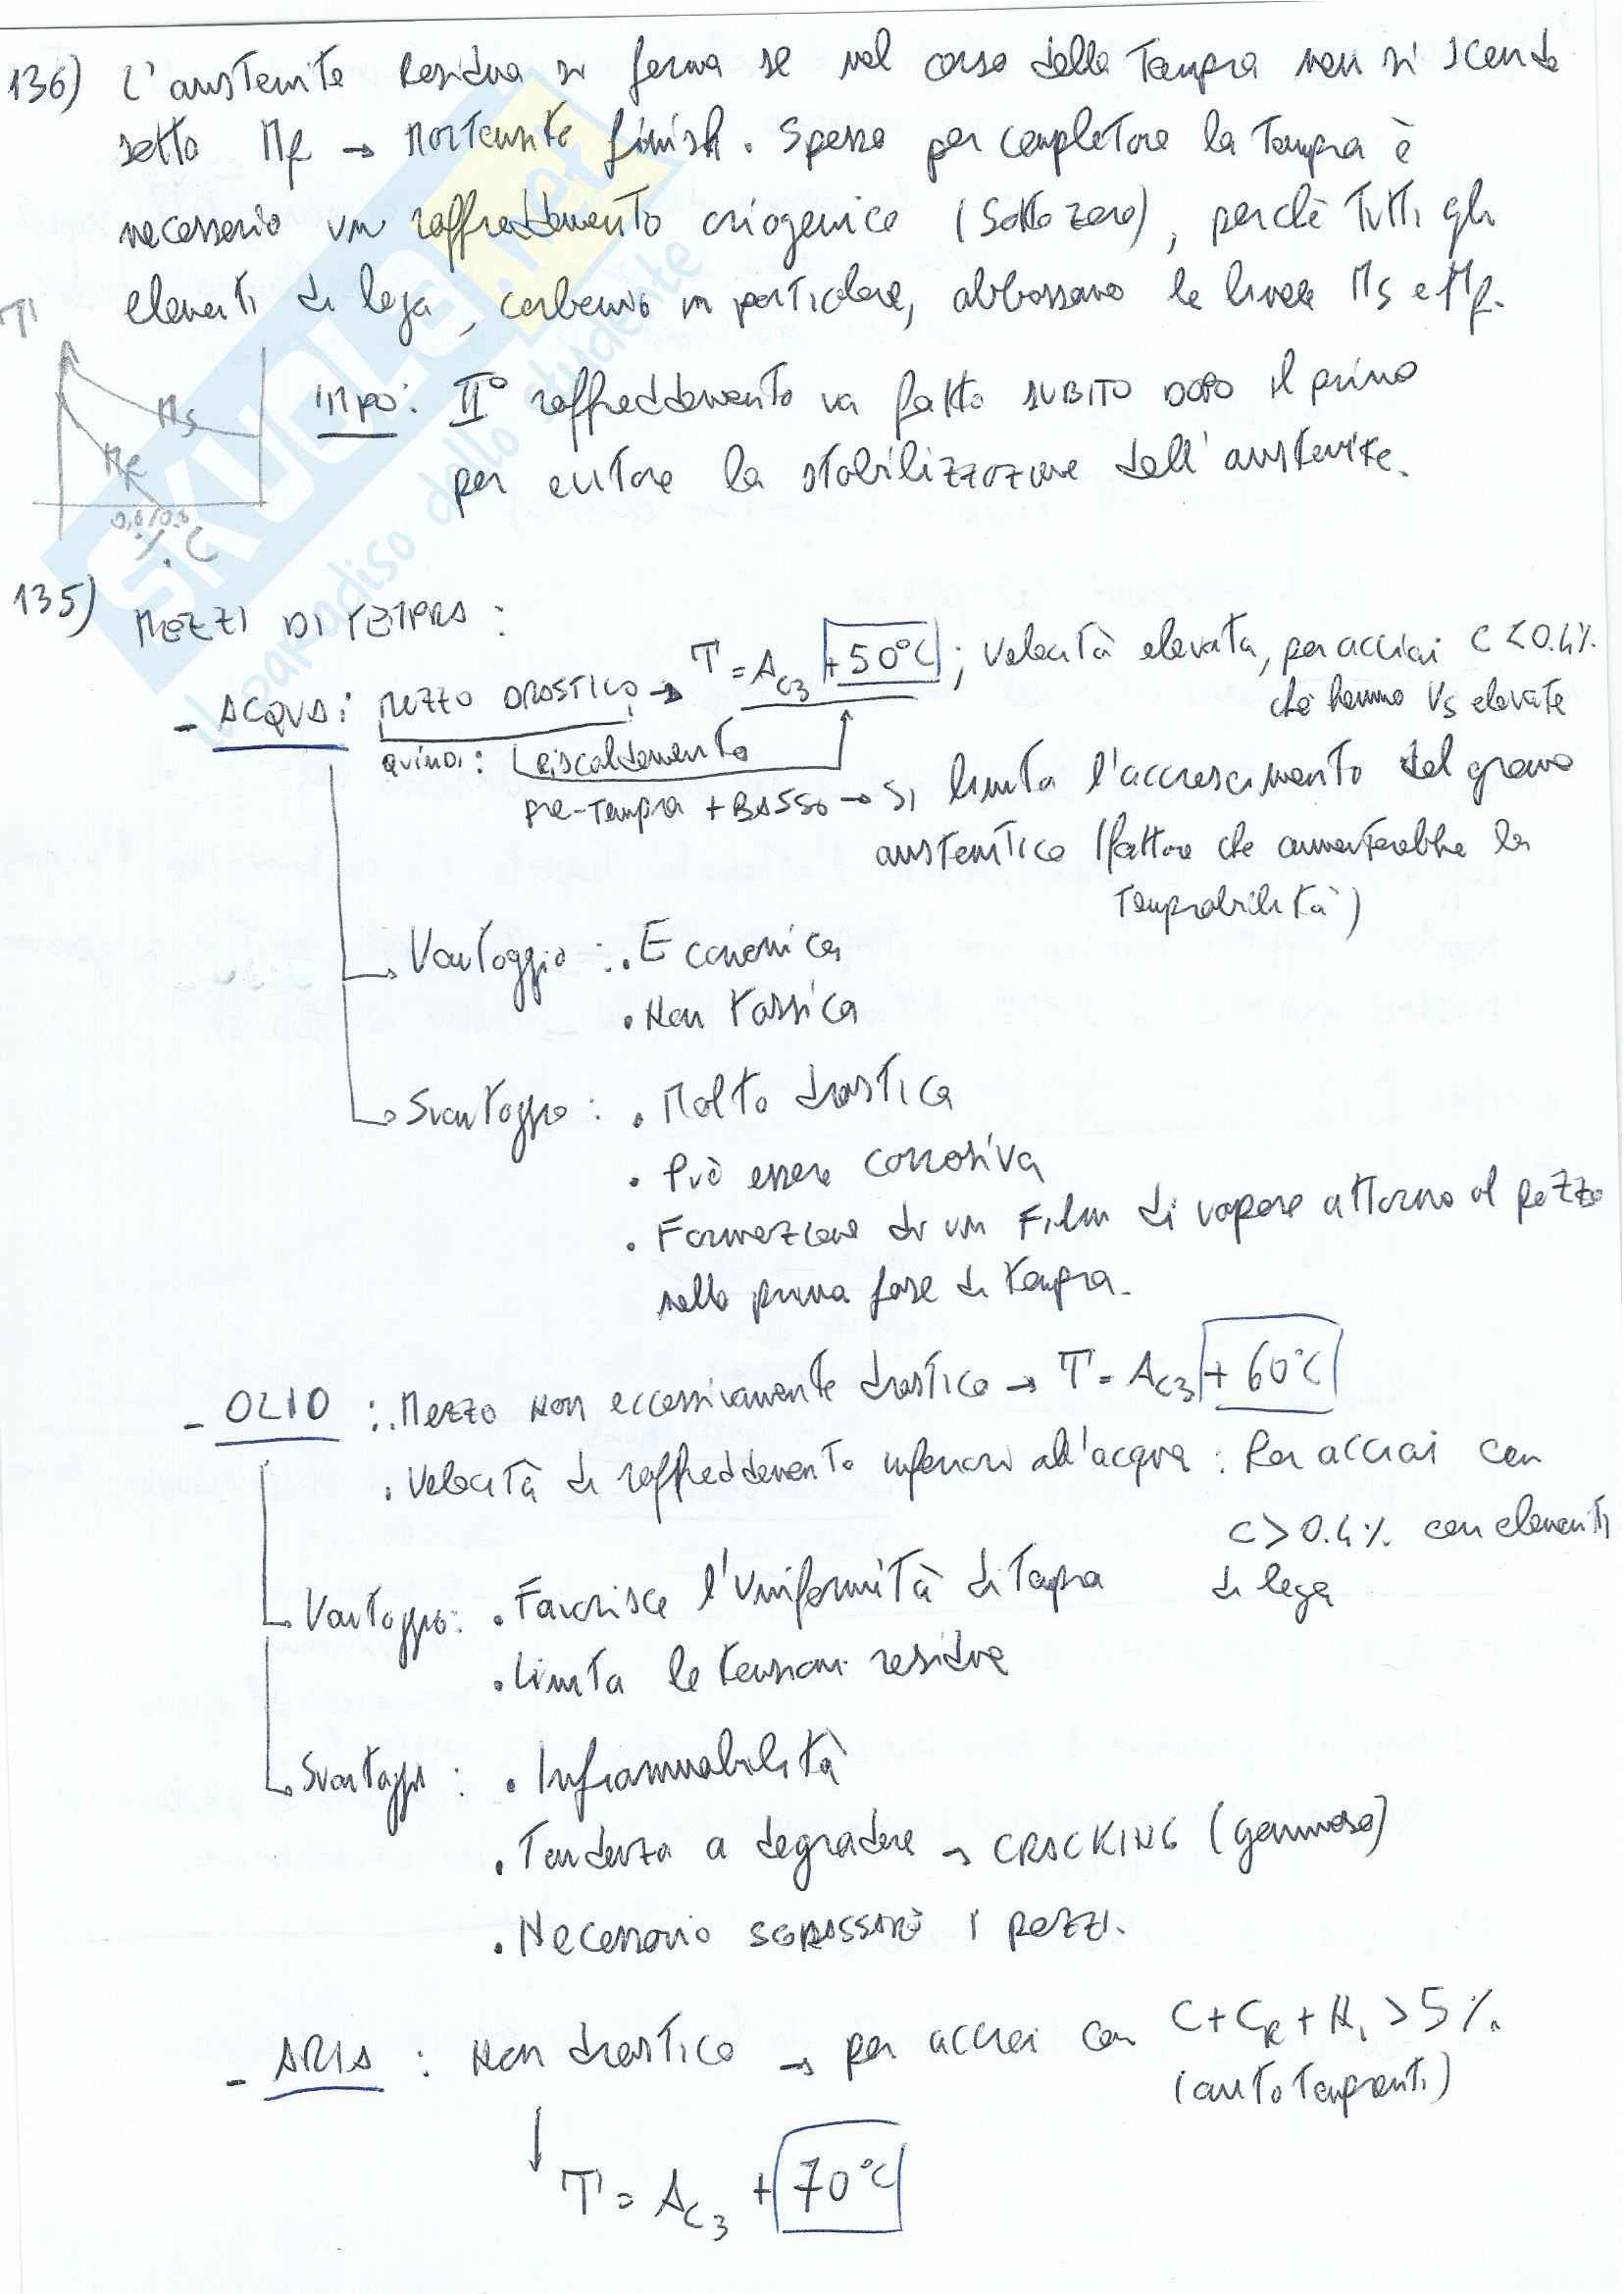 136) L'austenite Residua si forma se nel corso della Tempra non si scende
sotto Mf → Martensite finish. Spesso per completare la Tempra è
necessario un raffreddamento criogenico (Sotto zero), perchè Tutti gli
elementi di lega, carbonio in particolare, abbassano le linee Ms e Mf.
T
Ms
Mf
0,6/0.8
% C
IMPO: II° raffreddamento va fatto SUBITO DOPO il primo
per evitare la stabilizzazione dell'austenite.
135) MEZZI DI TEMPRA :
- ACQUA : MEZZO DRASTICO → T = AC3 +50°C ; Velocità elevata, per acciai C < 0.4%
che hanno Vs elevate
quindi : Riscaldamento
Pre-Tempra + BASSO → si limita l'accrescimento del grano
austenitico (fattore che aumenterebbe la
Temprabilità)
Vantaggio : . Economica
. Non Tossica
Svantaggio : . Molto drastica
. Può essere corrosiva
. Formazione di un Film di vapore attorno al pezzo
nella prima fase di tempra.
- OLIO : . Mezzo non eccessivamente drastico → T = AC3 + 60°C
. Velocità di raffreddamento inferiori all'acqua : Per acciai con
C > 0.4% con elementi
di lega
Vantaggio : . Favorisce l'Uniformità di Tempra
. Limita le tensioni residue
Svantaggi : . Infiammabilità
. Tendenza a degradare → CRACKING (gommoso)
. Necessario SGRASSARE i pezzi.
- ARIA : Non drastico → per acciai con C + Cr + Ni > 5%
(autotempranti)
↓
T = AC3 + 70°C
SKUOLA.net
il paradiso dello studente